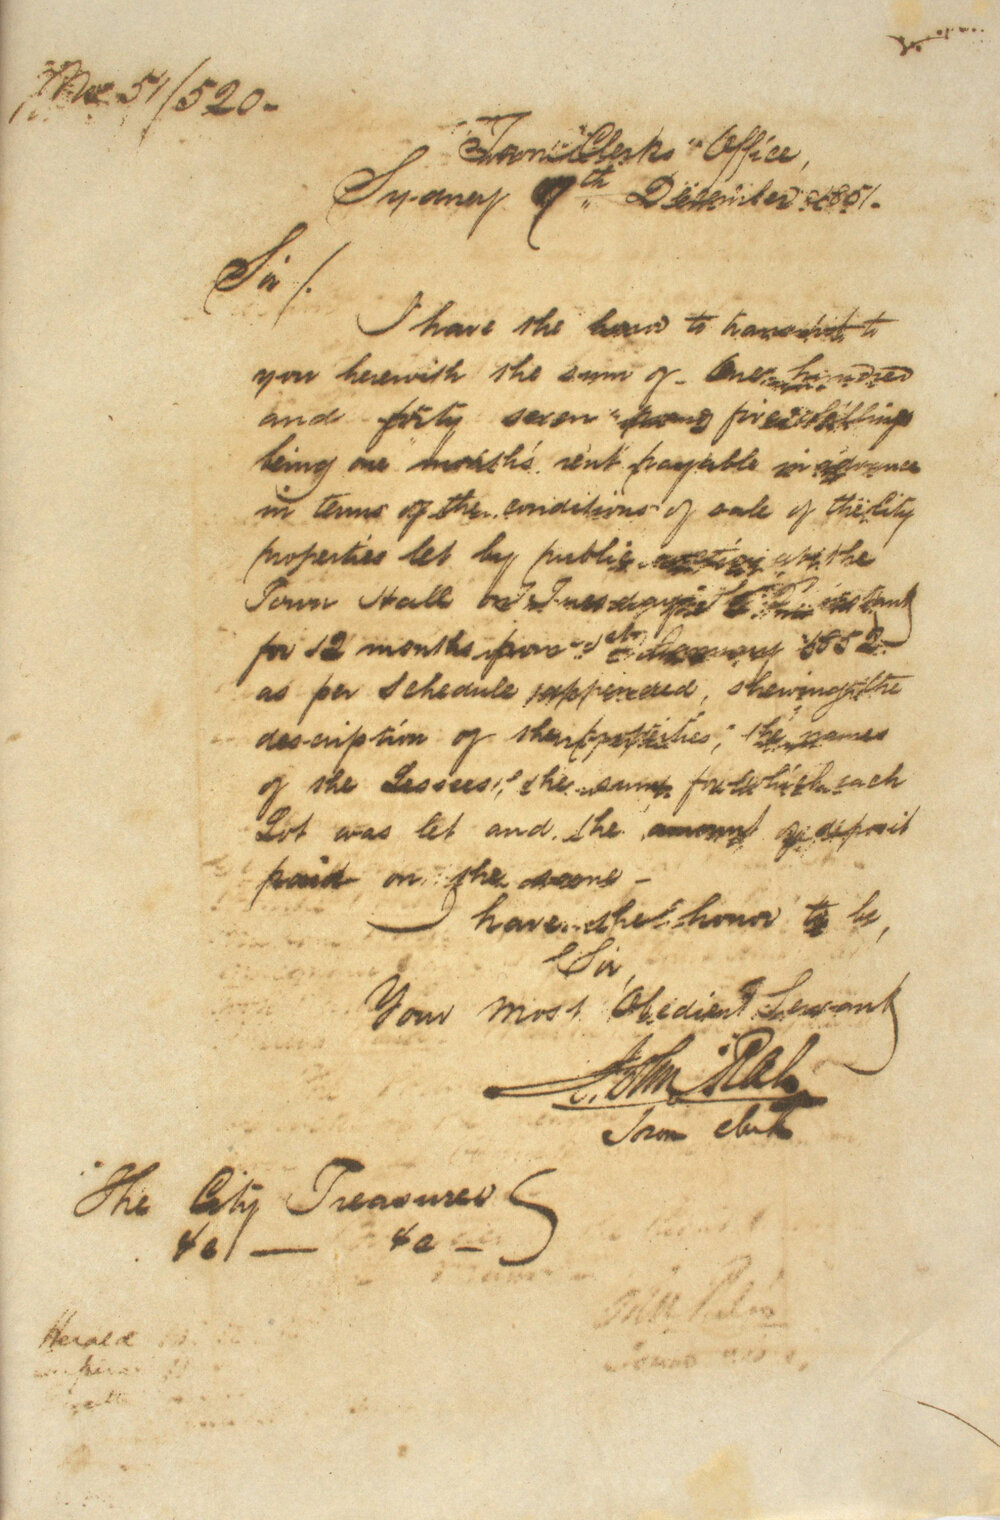 51/520-
Town Clerks Office,
Sydney 9th December 1851.
Sir/.
I have the honor to transmit to
you herewith the sum of One hundred
and forty seven pounds five shillings
being one month's rent payable in advance
in terms of the conditions of sale of the City
properties let by public at the
Town Hall on Tuesday the instant
for 12 months from 1st January 1852
as per Schedule appended, shewing the
description of the properties, the names
of the Lessees, the sum for which each
Lot was let and the amount of deposit
paid on the same -
I have the honor to be,
Sir,
Your most Obedient Servant
John
Town Clerk
The City Treasurer
&c — &c -
Herald
Empire